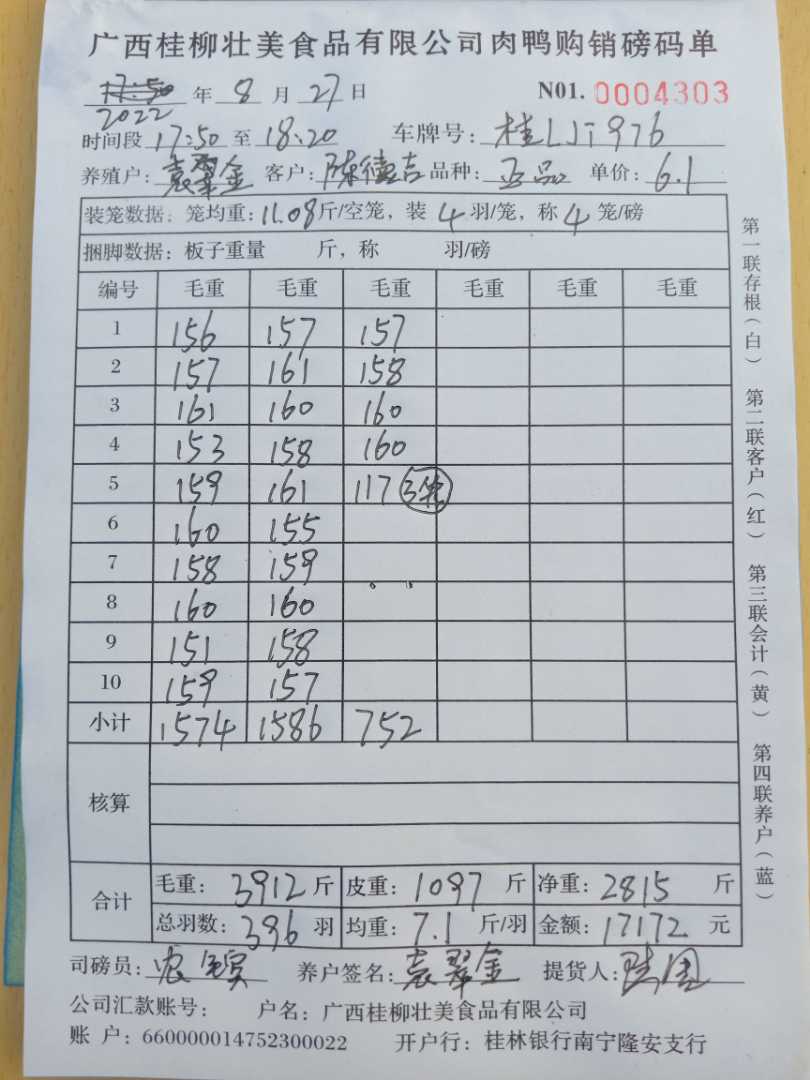 广西桂柳壮美食品有限公司肉鸭购销磅码单
17:50 年 8 月 27 日 N01. 0004303
2022
时间段 17:50 至 18:20 车牌号:桂LJT976
养殖户:袁翠金 客户:陈德吉 品种:正品 单价:6.1
装笼数据:笼均重:11.08斤/空笼,装 4 羽/笼,称 4 笼/磅
捆脚数据:板子重量 斤,称 羽/磅
编号 毛重 毛重 毛重 毛重 毛重 毛重
1 156 157 157
2 157 161 158
3 161 160 160
4 153 158 160
5 159 161 117 3笼
6 160 155
7 158 159
8 160 160
9 151 158
10 159 157
小计 1574 1586 752
核算
合计 毛重:3912斤 皮重:1097 斤 净重:2815 斤
总羽数:396 羽 均重:7.1 斤/羽 金额:17172 元
司磅员:农 养户签名:袁翠金 提货人:
公司汇款账号: 户名:广西桂柳壮美食品有限公司
账 户:660000014752300022 开户行:桂林银行南宁隆安支行
第一联存根(白) 第二联客户(红) 第三联会计(黄) 第四联养户(蓝)